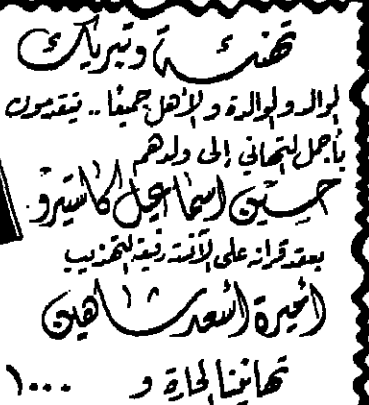 تهنئة وتبريك
الوالد والوالدة والأهل جميعًا .. يتقدمون
بأجمل التهاني إلى ولدهم
حسين اسماعيل كاستيرو
بعقد قرانه على الآنسة رقيقة التهذيب
أميرة أسعد شاهين
تهانينا الحارة و ١٠٠٠